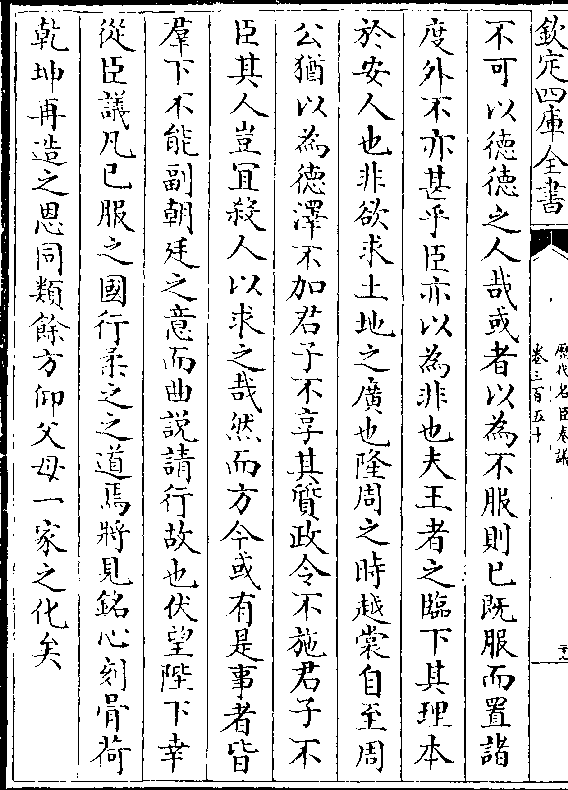 欽定四庫全書
歷代名臣奏議
卷三百五十
不可以德德之人哉或者以為不服則已既服而置諸
度外不亦甚乎臣亦以為非也夫王者之臨下其理本
於安人也非欲求土地之廣也隆周之時越裳自至周
公猶以為德澤不加君子不享其質政令不施君子不
臣其人豈宜殺人以求之哉然而方今或有是事者皆
羣下不能副朝廷之意而曲說請行故也伏望陛下幸
從臣議凡已服之國行柔之之道焉將見銘心刻骨荷
乾坤再造之恩同類餘方仰父母一家之化矣